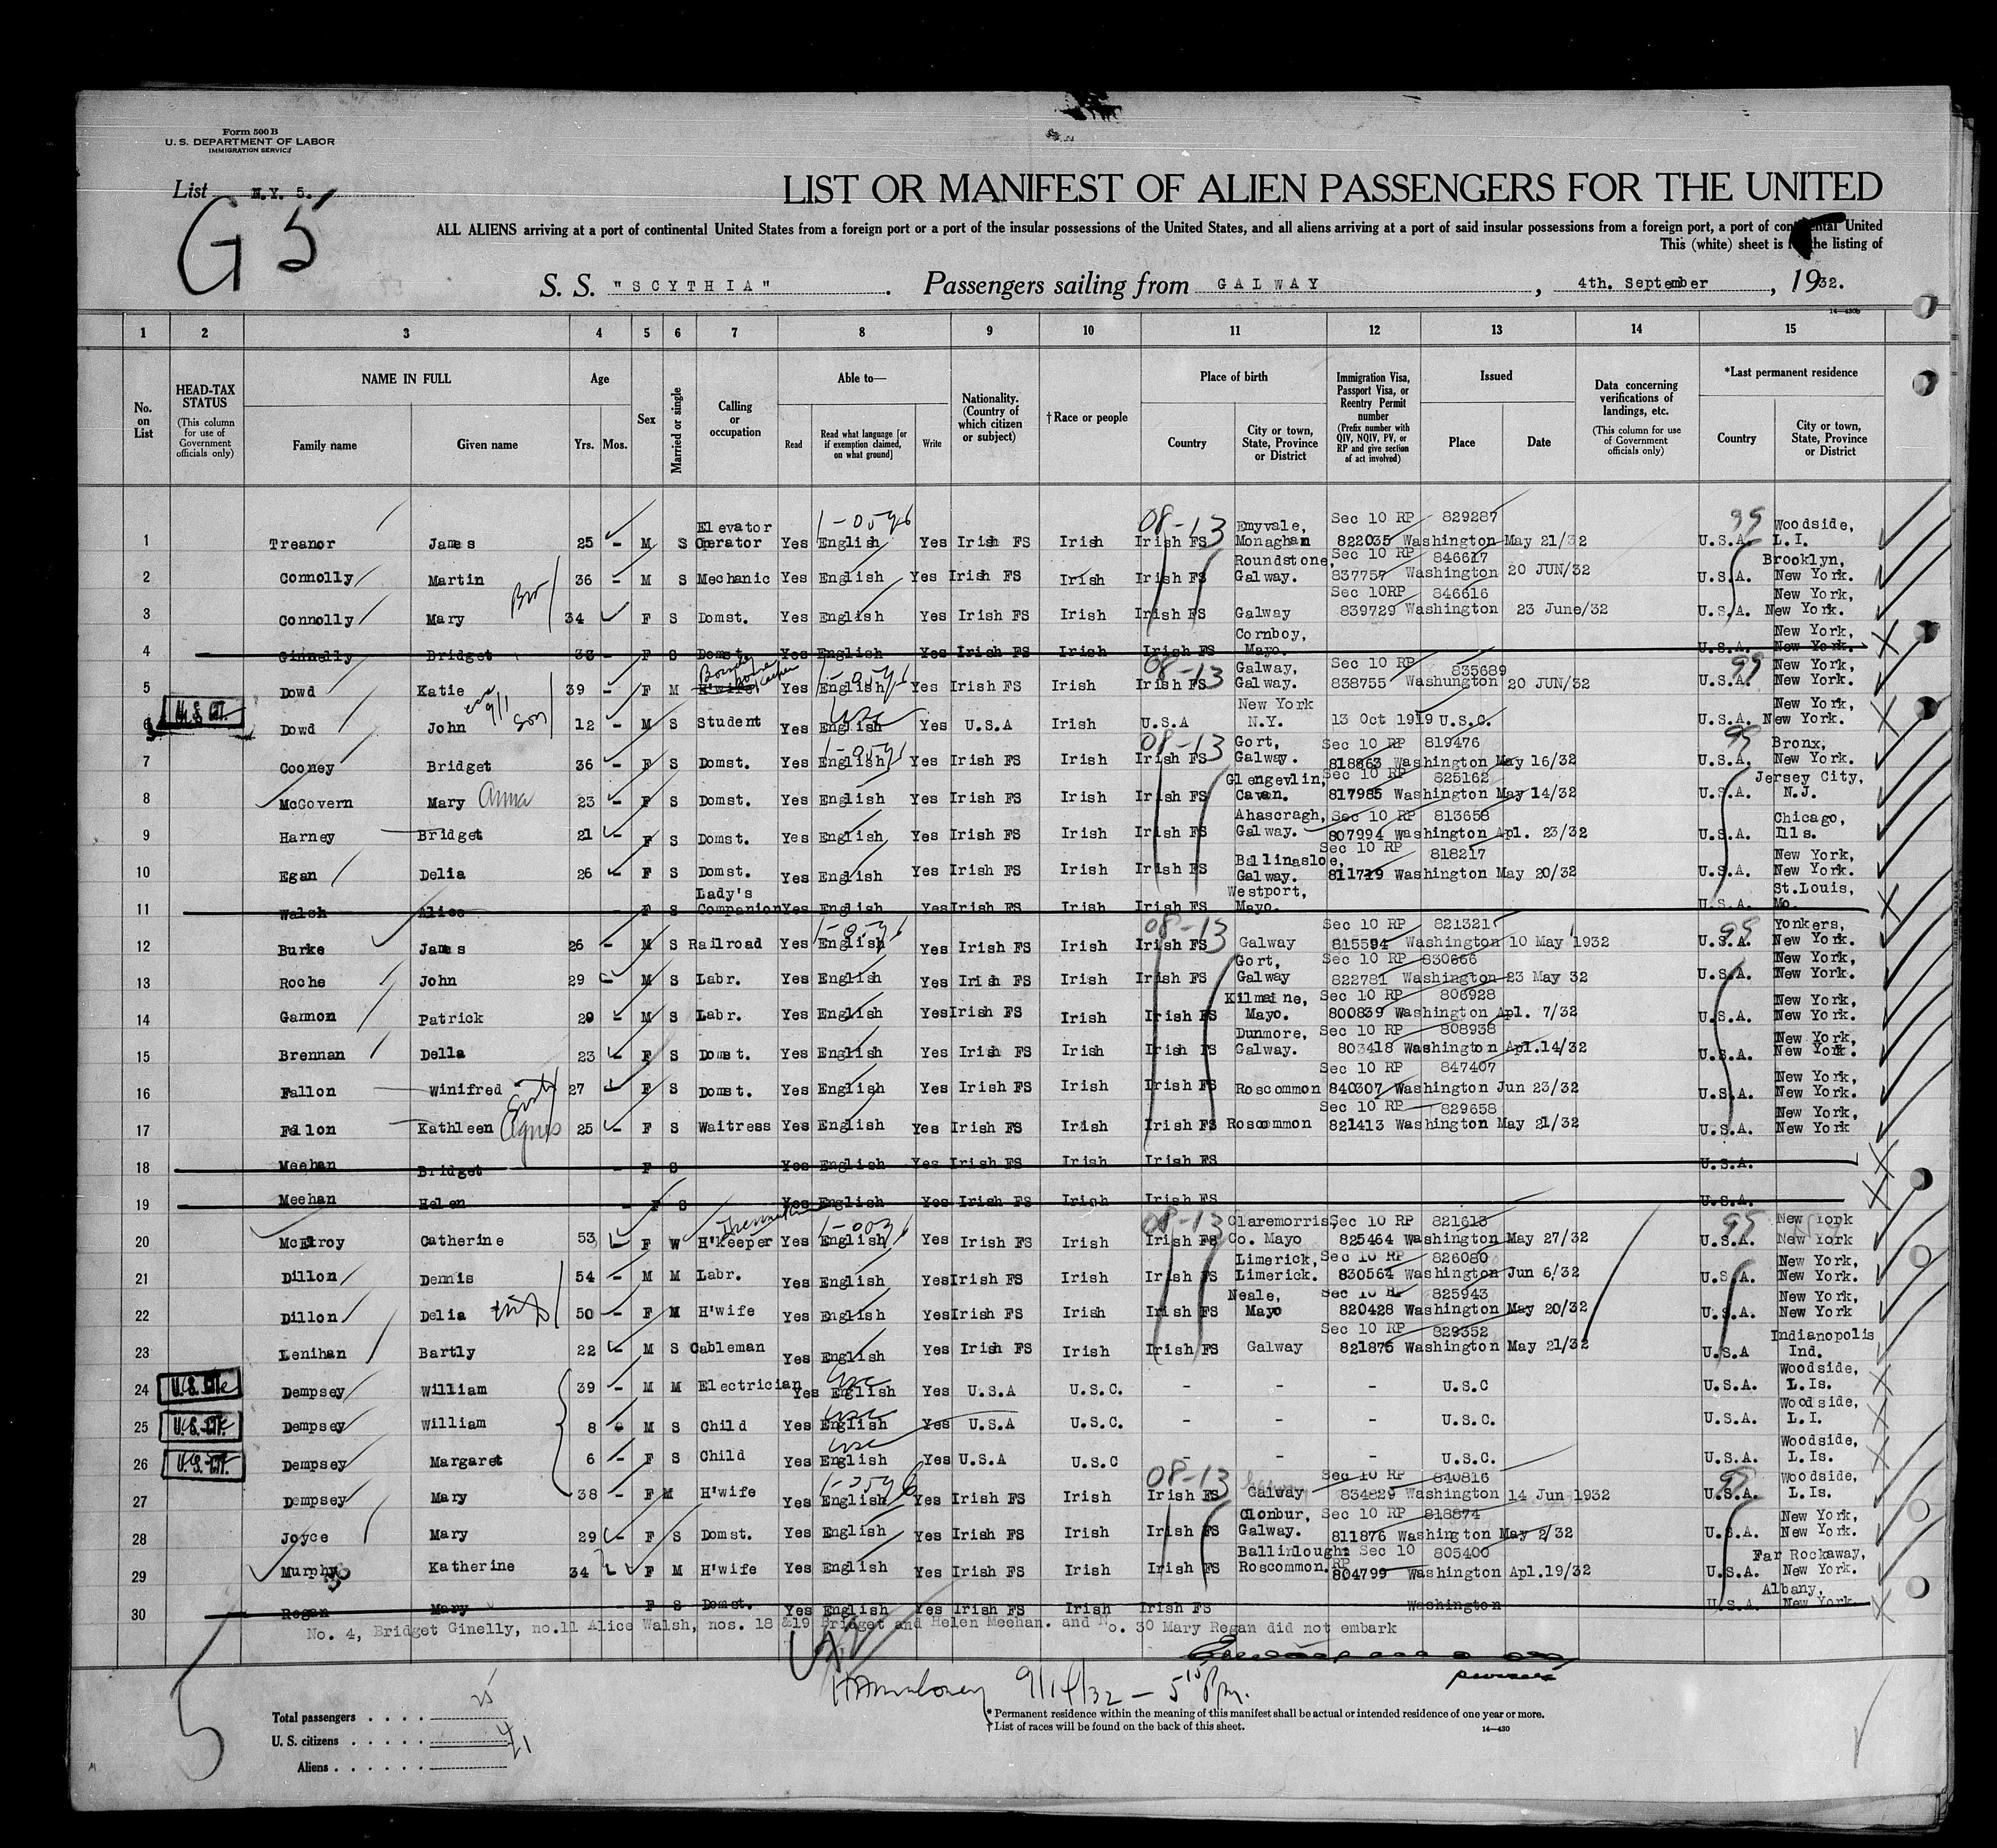 Form 500 B
U. S. DEPARTMENT OF LABOR
IMMIGRATION SERVICE
List N.Y. 5.
G 5
LIST OR MANIFEST OF ALIEN PASSENGERS FOR THE UNITED
ALL ALIENS arriving at a port of continental United States from a foreign port or a port of the insular possessions of the United States, and all aliens arriving at a port of said insular possessions from a foreign port, a port of continental United
This (white) sheet is the listing of
S. S. "SCYTHIA". Passengers sailing from GALWAY, 4th. September, 1932.
14—430b
1 2 3 4 5 6 7 8 9 10 11 12 13 14 15
No. on List
HEAD-TAX STATUS (This column for use of Government officials only)
NAME IN FULL Family name Given name
Age Yrs. Mos.
Sex
Married or single
Calling or occupation
Able to— Read Read what language [or if exemption claimed, on what ground] Write
Nationality. (Country of which citizen or subject)
†Race or people
Place of birth Country City or town, State, Province or District
Immigration Visa, Passport Visa, or Reentry Permit number (Prefix number with QIV, NQIV, PV, or RP and give section of act involved)
Issued Place Date
Data concerning verifications of landings, etc. (This column for use of Government officials only)
*Last permanent residence Country City or town, State, Province or District
1 Treanor James 25 - M S Elevator Operator Yes English Yes Irish FS Irish 08-13 Irish FS Emyvale, Monaghan Sec 10 RP 829287 822035 Washington May 21/32 99 U.S.A. Woodside, L.I.
2 Connolly Martin 36 - M S Mechanic Yes English Yes Irish FS Irish Irish FS Roundstone, Galway. Sec 10 RP 846617 837757 Washington 20 JUN/32 U.S.A. Brooklyn, New York.
3 Connolly Mary Bro 34 F S Domst. Yes English Yes Irish FS Irish Irish FS Galway Sec 10RP 846616 839729 Washington 23 June/32 U.S.A. New York, New York.
4 Ginnelly Bridget 33 - F S Domst. Yes English Yes Irish FS Irish Irish FS Cornboy, Mayo. U.S.A. New York, New York.
5 Dowd Katie 39 - F M H'wife Yes English Yes Irish FS Irish 08-13 Irish FS Galway, Galway. Sec 10 RP 835689 838755 Washungton 20 JUN/32 99 U.S.A. New York, New York.
6 U.S. CIT. Dowd John Son 12 - M S Student Yes English USC Yes U.S.A Irish U.S.A New York N.Y. 13 Oct 1919 U.S.C. U.S.A. New York, New York.
7 Cooney Bridget 36 - F S Domst. Yes English Yes Irish FS Irish 08-13 Irish FS Gort, Galway. Sec 10 RP 819476 818863 Washington May 16/32 99 U.S.A. Bronx, New York.
8 McGovern Mary Anna 23 - F S Domst. Yes English Yes Irish FS Irish Irish FS Glengevlin, Cavan. Sec 10 RP 825162 817985 Washington May 14/32 U.S.A. Jersey City, N.J.
9 Harney Bridget 21 F S Domst. Yes English Yes Irish FS Irish Irish FS Ahascragh, Galway. Sec 10 RP 813658 807994 Washington Apl. 23/32 U.S.A. Chicago, Ills.
10 Egan Delia 26 - F S Domst. Yes English Yes Irish FS Irish Irish FS Ballinasloe, Galway. Sec 10 RP 818217 811719 Washington May 20/32 U.S.A. New York, New York.
11 Walsh Alice - F S Lady's Companion Yes English Yes Irish FS Irish Irish FS Westport, Mayo. U.S.A. St.Louis, Mo.
12 Burke James 26 - M S Railroad Yes English Yes Irish FS Irish 08-13 Irish FS Galway Sec 10 RP 821321 815594 Washington 10 May 1932 99 U.S.A. Yonkers, New York.
13 Roche John 29 M S Labr. Yes English Yes Irish FS Irish Irish FS Gort, Galway Sec 10 RP 830666 822781 Washington 23 May 32 U.S.A. New York, New York.
14 Gannon Patrick 29 - M S Labr. Yes English Yes Irish FS Irish Irish FS Kilmaine, Mayo. Sec 10 RP 806928 800839 Washington Apl. 7/32 U.S.A. New York, New York.
15 Brennan Della 23 F S Domst. Yes English Yes Irish FS Irish Irish FS Dunmore, Galway. Sec 10 RP 808938 803418 Washington Apl.14/32 U.S.A. New York, New York.
16 Fallon Winifred 27 F S Domst. Yes English Yes Irish FS Irish Irish FS Roscommon Sec 10 RP 847407 840307 Washington Jun 23/32 U.S.A. New York, New York.
17 Fallon Kathleen Agnes 25 - F S Waitress Yes English Yes Irish FS Irish Irish FS Roscommon Sec 10 RP 829658 821413 Washington May 21/32 U.S.A. New York, New York
18 Meehan Bridget - F S Yes English Yes Irish FS Irish Irish FS U.S.A.
19 Meehan Helen - F S Yes English Yes Irish FS Irish Irish FS U.S.A.
20 McElroy Catherine 53 F W H'keeper Yes English Yes Irish FS Irish 08-13 Irish FS Claremorris, Co. Mayo Sec 10 RP 821613 825464 Washington May 27/32 U.S.A. New York New York
21 Dillon Dennis 54 - M M Labr. Yes English Yes Irish FS Irish Irish FS Limerick, Limerick. Sec 10 RP 826080 830564 Washington Jun 6/32 U.S.A. New York, New York.
22 Dillon Delia 50 - F M H'wife Yes English Yes Irish FS Irish Irish FS Neale, Mayo Sec 10 RP 825943 820428 Washington May 20/32 U.S.A. New York, New York
23 Lenihan Bartly 22 M S Cableman Yes English Yes Irish FS Irish Irish FS Galway Sec 10 RP 829352 821875 Washington May 21/32 U.S.A Indianopolis Ind.
24 Dempsey William 39 - M M Electrician Yes English USC Yes U.S.A U.S.C. - - - U.S.C U.S.A. Woodside, L.Is.
25 U.S. CIT. Dempsey William 8 - M S Child Yes English USC Yes U.S.A U.S.C. - - - U.S.C. U.S.A. Woodside, L.I.
26 U.S. CIT. Dempsey Margaret 6 - F S Child Yes English USC Yes U.S.A U.S.C - - U.S.C. U.S.A. Woodside, L.Is.
27 Dempsey Mary 38 - F M H'wife Yes English Yes Irish FS Irish 08-13 Irish FS Galway Sec 10 RP 840816 834829 Washington 14 Jun 1932 U.S.A. Woodside, L.Is.
28 Joyce Mary 29 - F S Domst. Yes English Yes Irish FS Irish Irish FS Clonbur, Galway. Sec 10 RP 818874 811876 Washington May 2/32 U.S.A. New York, New York.
29 Murphy Katherine 34 F M H'wife Yes English Yes Irish FS Irish Irish FS Ballinlough Roscommon. Sec 10 RP 805400 804799 Washington Apl.19/32 U.S.A. Far Rockaway, New York.
30 Regan Mary - F S Domst. Yes English Yes Irish FS Irish Irish FS Washington U.S.A. Albany, New York.
No. 4, Bridget Ginelly, no.11 Alice Walsh, nos. 18 &19 Bridget and Helen Meehan. and No. 30 Mary Regan did not embark
9/14/32 — 5 15 Pm.
Total passengers . . . . 25
U. S. citizens . . . . . 4
Aliens . . . . . . 21
* Permanent residence within the meaning of this manifest shall be actual or intended residence of one year or more.
† List of races will be found on the back of this sheet.
14—430